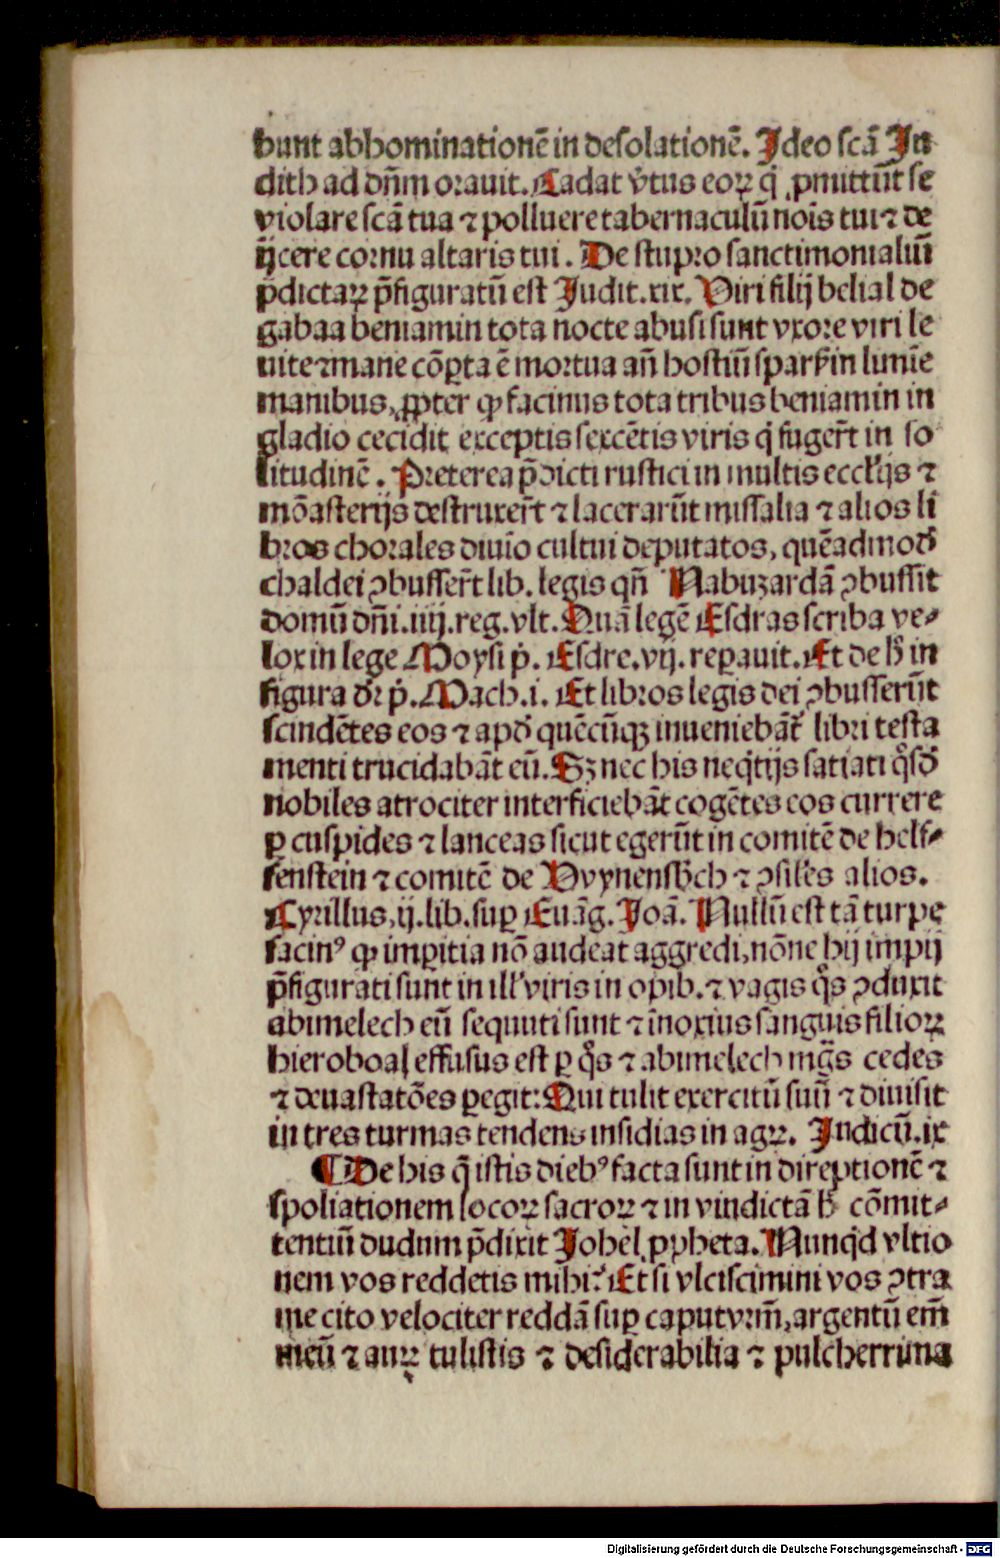 bunt abhominationē in desolationē. Ideo scā Iu
dith ad dn̄m orauit. Cadat v̓tus eoꝝ q̇ ꝓmittūt se
violare scā tua ⁊ polluere tabernaculū noīs tui ⁊ de
ijcere cornu altaris tui. De stupro sanctimonialiū
p̄dictaꝝ p̄figuratū est Judit.xix. Viri filij belial de
gabaa beniamin tota nocte abusi sunt vxore viri le
uite ⁊ mane cōꝑta ē mortua an̄ hostiū sparsꝭ in limīe
manibus, ꝓpter qꝫ facinus tota tribus beniamin in
gladio cecidit exceptis sexcētis viris q̇ fuger̄t in so
litudinē. Preterea p̄dicti rustici in multis eccl̓ijs ⁊
mōasterijs destruxer̄t ⁊ lacerarūt missalia ⁊ alios li
bros chorales diuīo cultui deputatos, quēadmodū
chaldei ꝯbusser̄t lib. legis qn̄ Nabuzardā ꝯbussit
domū dn̄i.iiij.reg.vlt. Quā legē Esdras scriba ve-
lox in lege Moysi p̓. Esdre.vij. reꝑauit. Et de hꝰ in
figura dr̄ p̓. Mach.i. Et libros legis dei ꝯbusserūt
scindētes eos ⁊ apd̓ quēcūqꝫ inueniebāt̓ libri testa
menti trucidabāt eū. Sꝫ nec his neq̇tijs satiati q̊sd̓
nobiles atrociter interficiebāt cogētes eos currere
ꝑ cuspides ⁊ lanceas sicut egerūt in comitē de helf-
fenstein ⁊ comitē de Vvynensb̓ch ⁊ ꝯsil̓es alios.
Cyrillus.ij.lib.suꝑ Euāg. Joā. Nullū est tā turpe
facinꝰ qꝫ imꝑitia nō audeat aggredi, nōne hij impij
p̄figurati sunt in ill̓ viris inopib.⁊ vagis q̊s ꝯduxit
abimelech eū sequuti sunt ⁊ īnoxius sanguis filioꝝ
hieroboal effusus est ꝑ q̊s ⁊ abimelech mḡs cedes
⁊ deuastatōes ꝑegit: Qui tulit exercitū suū ⁊ diuisit
in tres turmas tendens insidias in agꝝ. Judicū.ix
¶ De his q̄ istis diebꝰ facta sunt in direptionē ⁊
spoliationem locoꝝ sacroꝝ ⁊ in vindictā hꝰ cōmit-
tentiū dudum p̄dixit Johel ꝓpheta. Nunq̇d vltio
nem vos reddetis mihi? Et si vlciscimini vos ꝯtra
me cito velociter reddā suꝑ caput vr̄m, argentū em̄
meū ⁊ auꝝ tulistis ⁊ desiderabilia ⁊ pulcherrima
Digitalisierung gefördert durch die Deutsche Forschungsgemeinschaft - DFG